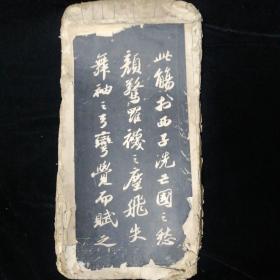 此觴於西子洗亡國之愁
顏驚羅襪之塵飛失
舞袖之弓彎覺而賦之